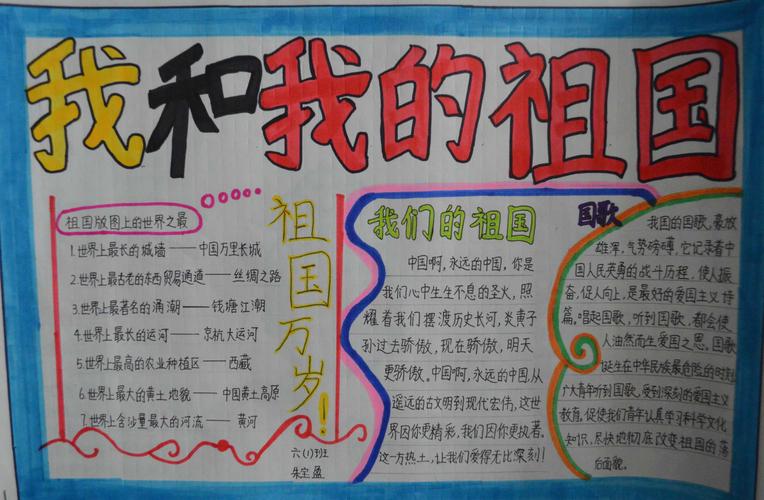 我和我的祖国
祖国版图上的世界之最
1.世界上最长的城墙——中国万里长城
2.世界上最古老的东西贸易通道——丝绸之路
3.世界上最著名的涌潮——钱塘江潮
4.世界上最长的运河——京杭大运河
5.世界上最高的农业种植区——西藏
6.世界上最大的黄土地貌——中国黄土高原
7.世界上含沙量最大的河流——黄河
祖国万岁!
六(1)班
朱宝盈
我们的祖国
中国啊,永远的中国,你是
我们心中生生不息的圣火,照
耀着我们摆渡历史长河,炎黄子
孙过去骄傲,现在骄傲,明天
更骄傲。中国啊,永远的中国,从
遥远的古文明到现代宏伟,这世
界因你更精彩,我们因你更执着。
这一方热土,让我们爱得无比深刻!
国歌
我国的国歌,豪放
雄浑,气势磅礴,它记录着中
国人民英勇的战斗历程,使人振
奋,促人向上,是最好的爱国主义诗
篇。唱起国歌,听到国歌,都会使
人油然而生爱国之思。国歌
诞生在中华民族最危险的时刻
广大青年听到国歌,受到深刻的爱国主义
教育,促使我们青年认真学习科学文化
知识,尽快地彻底改变祖国的落
后面貌。